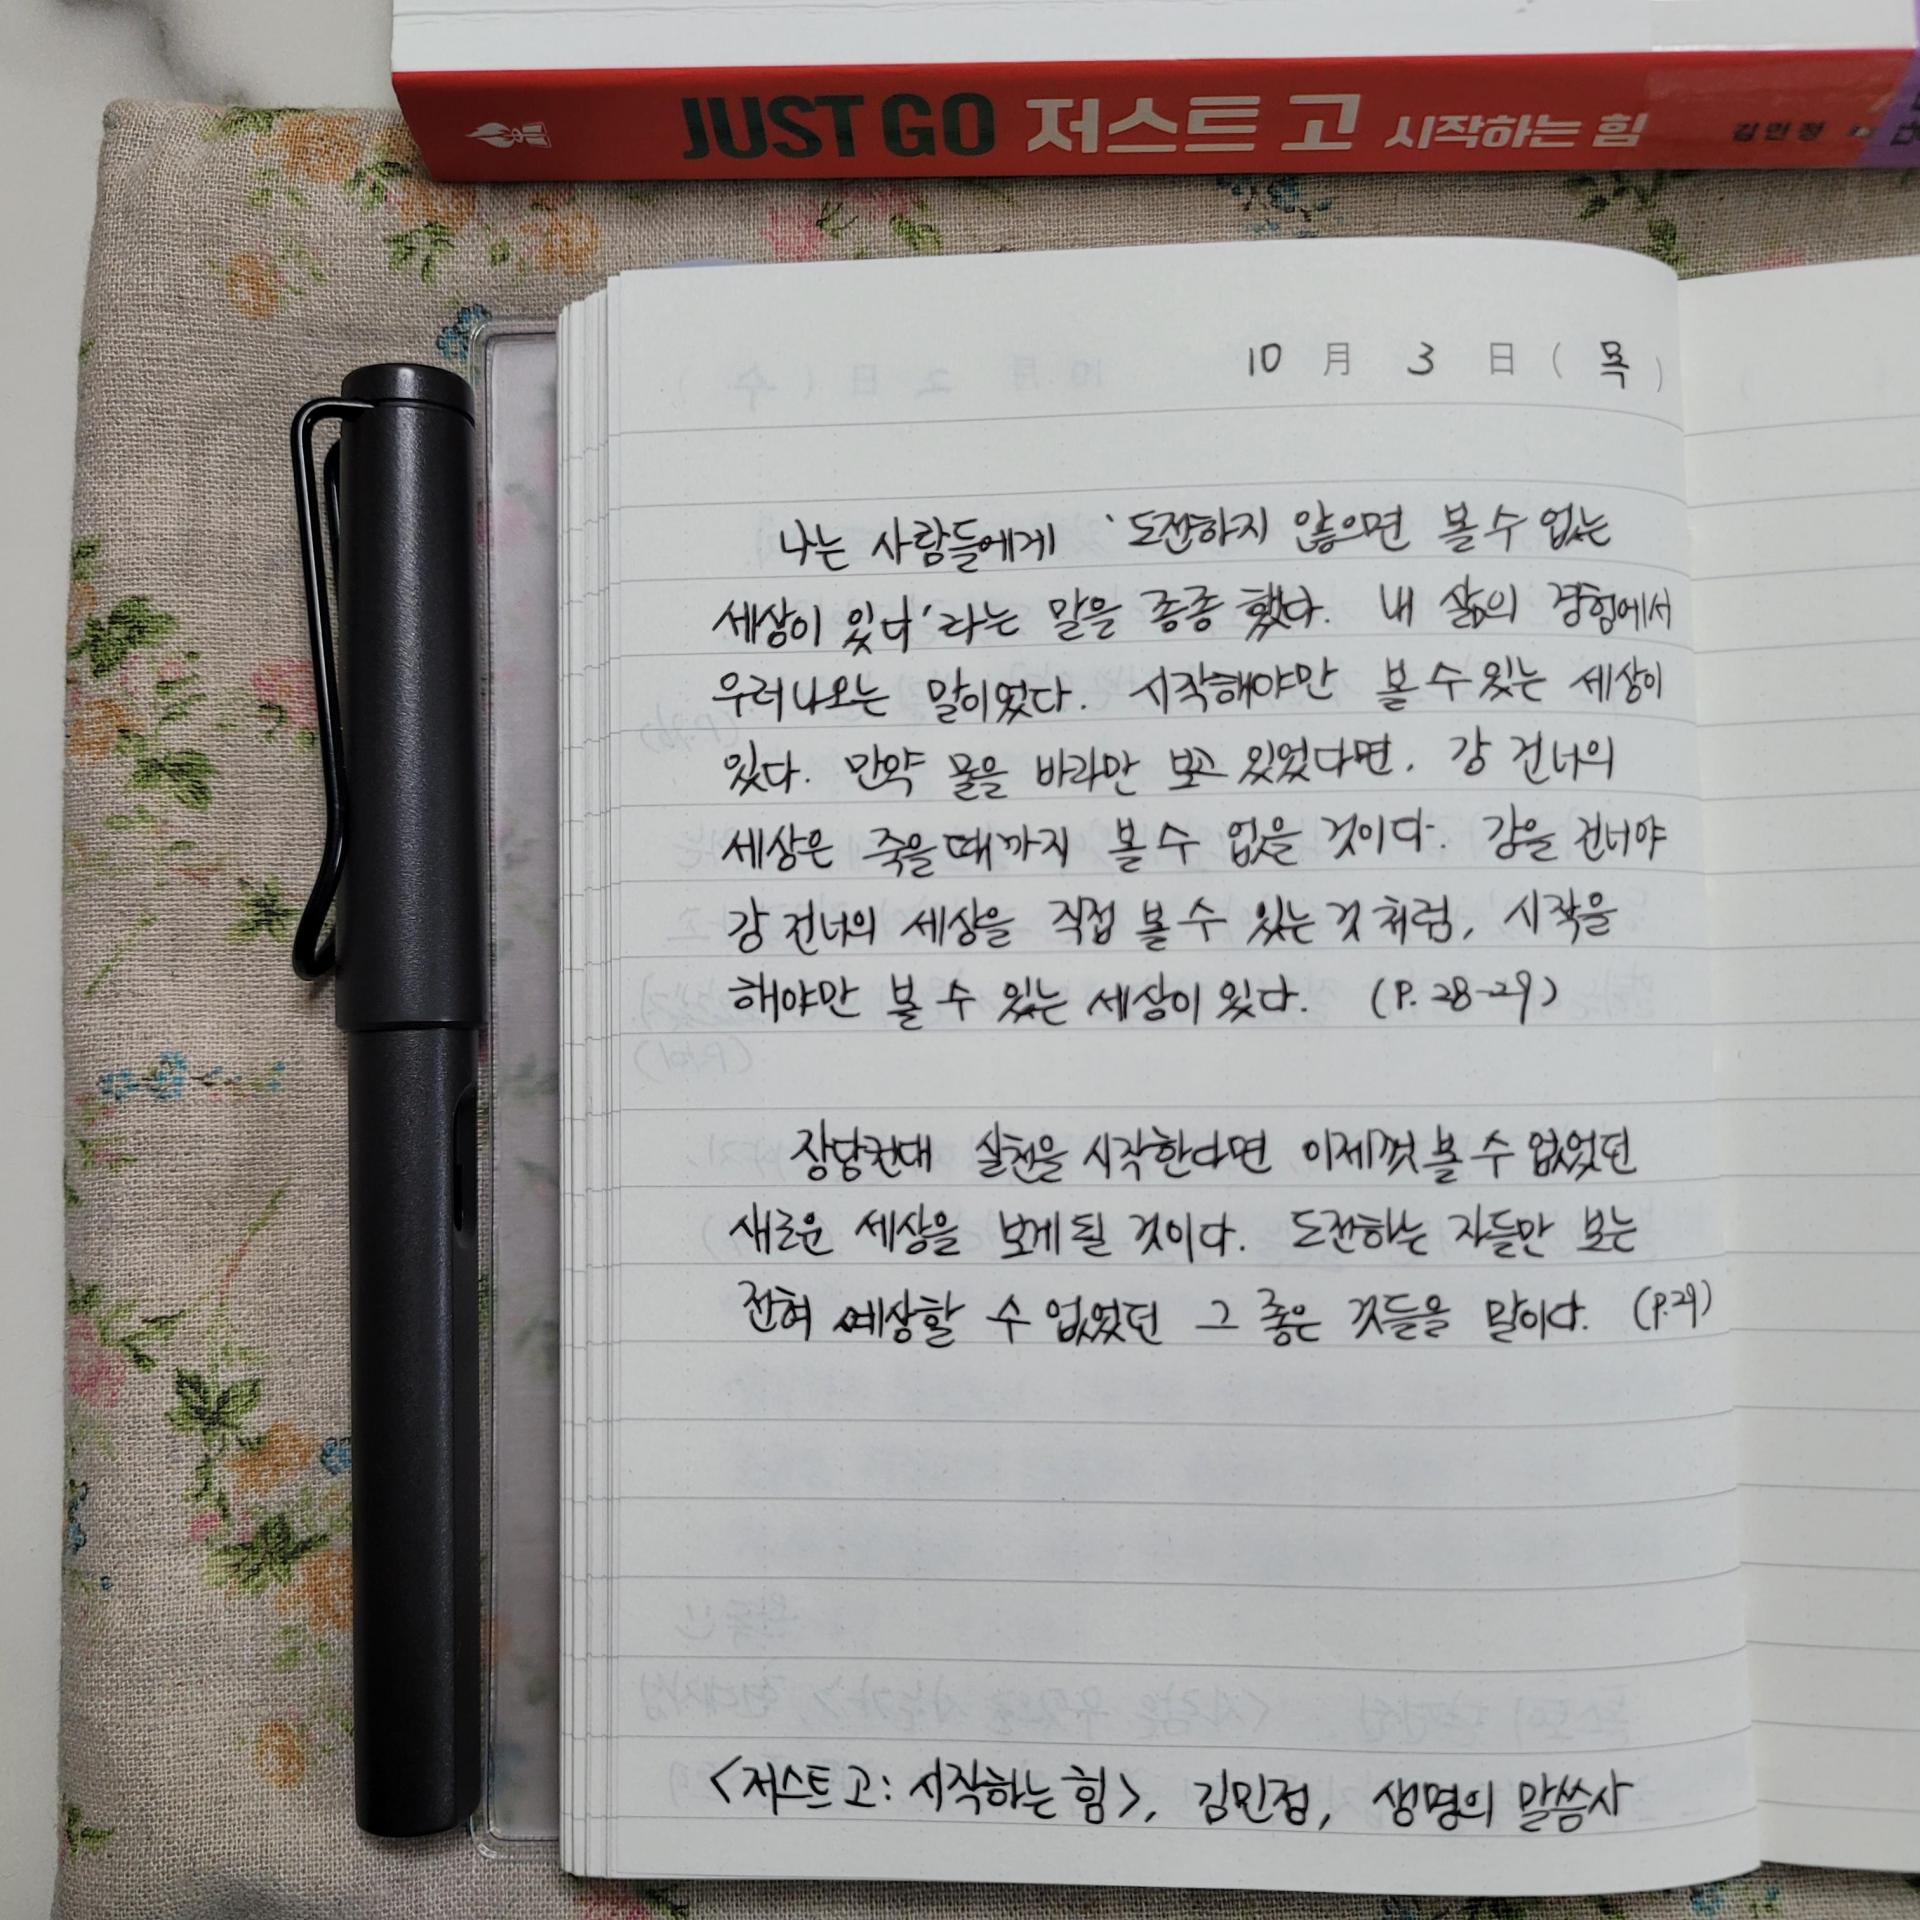 JUST GO 저스트 고 시작하는 힘 김민정
10 月 3 日 ( 목 )
나는 사람들에게 '도전하지 않으면 볼 수 없는
세상이 있다'라는 말을 종종 했다. 내 삶의 경험에서
우러나오는 말이었다. 시작해야만 볼 수 있는 세상이
있다. 만약 물을 바라만 보고 있었다면, 강 건너의
세상은 죽을때까지 볼 수 없을 것이다. 강을 건너야
강 건너의 세상을 직접 볼 수 있는 것 처럼, 시작을
해야만 볼 수 있는 세상이 있다. (P. 28-29)
장담컨대 실천을 시작한다면 이제껏 볼 수 없었던
새로운 세상을 보게 될 것이다. 도전하는 자들만 보는
전혀 예상할 수 없었던 그 좋은 것들을 말이다. (P.29)
<저스트 고: 시작하는 힘>, 김민정, 생명의 말씀사